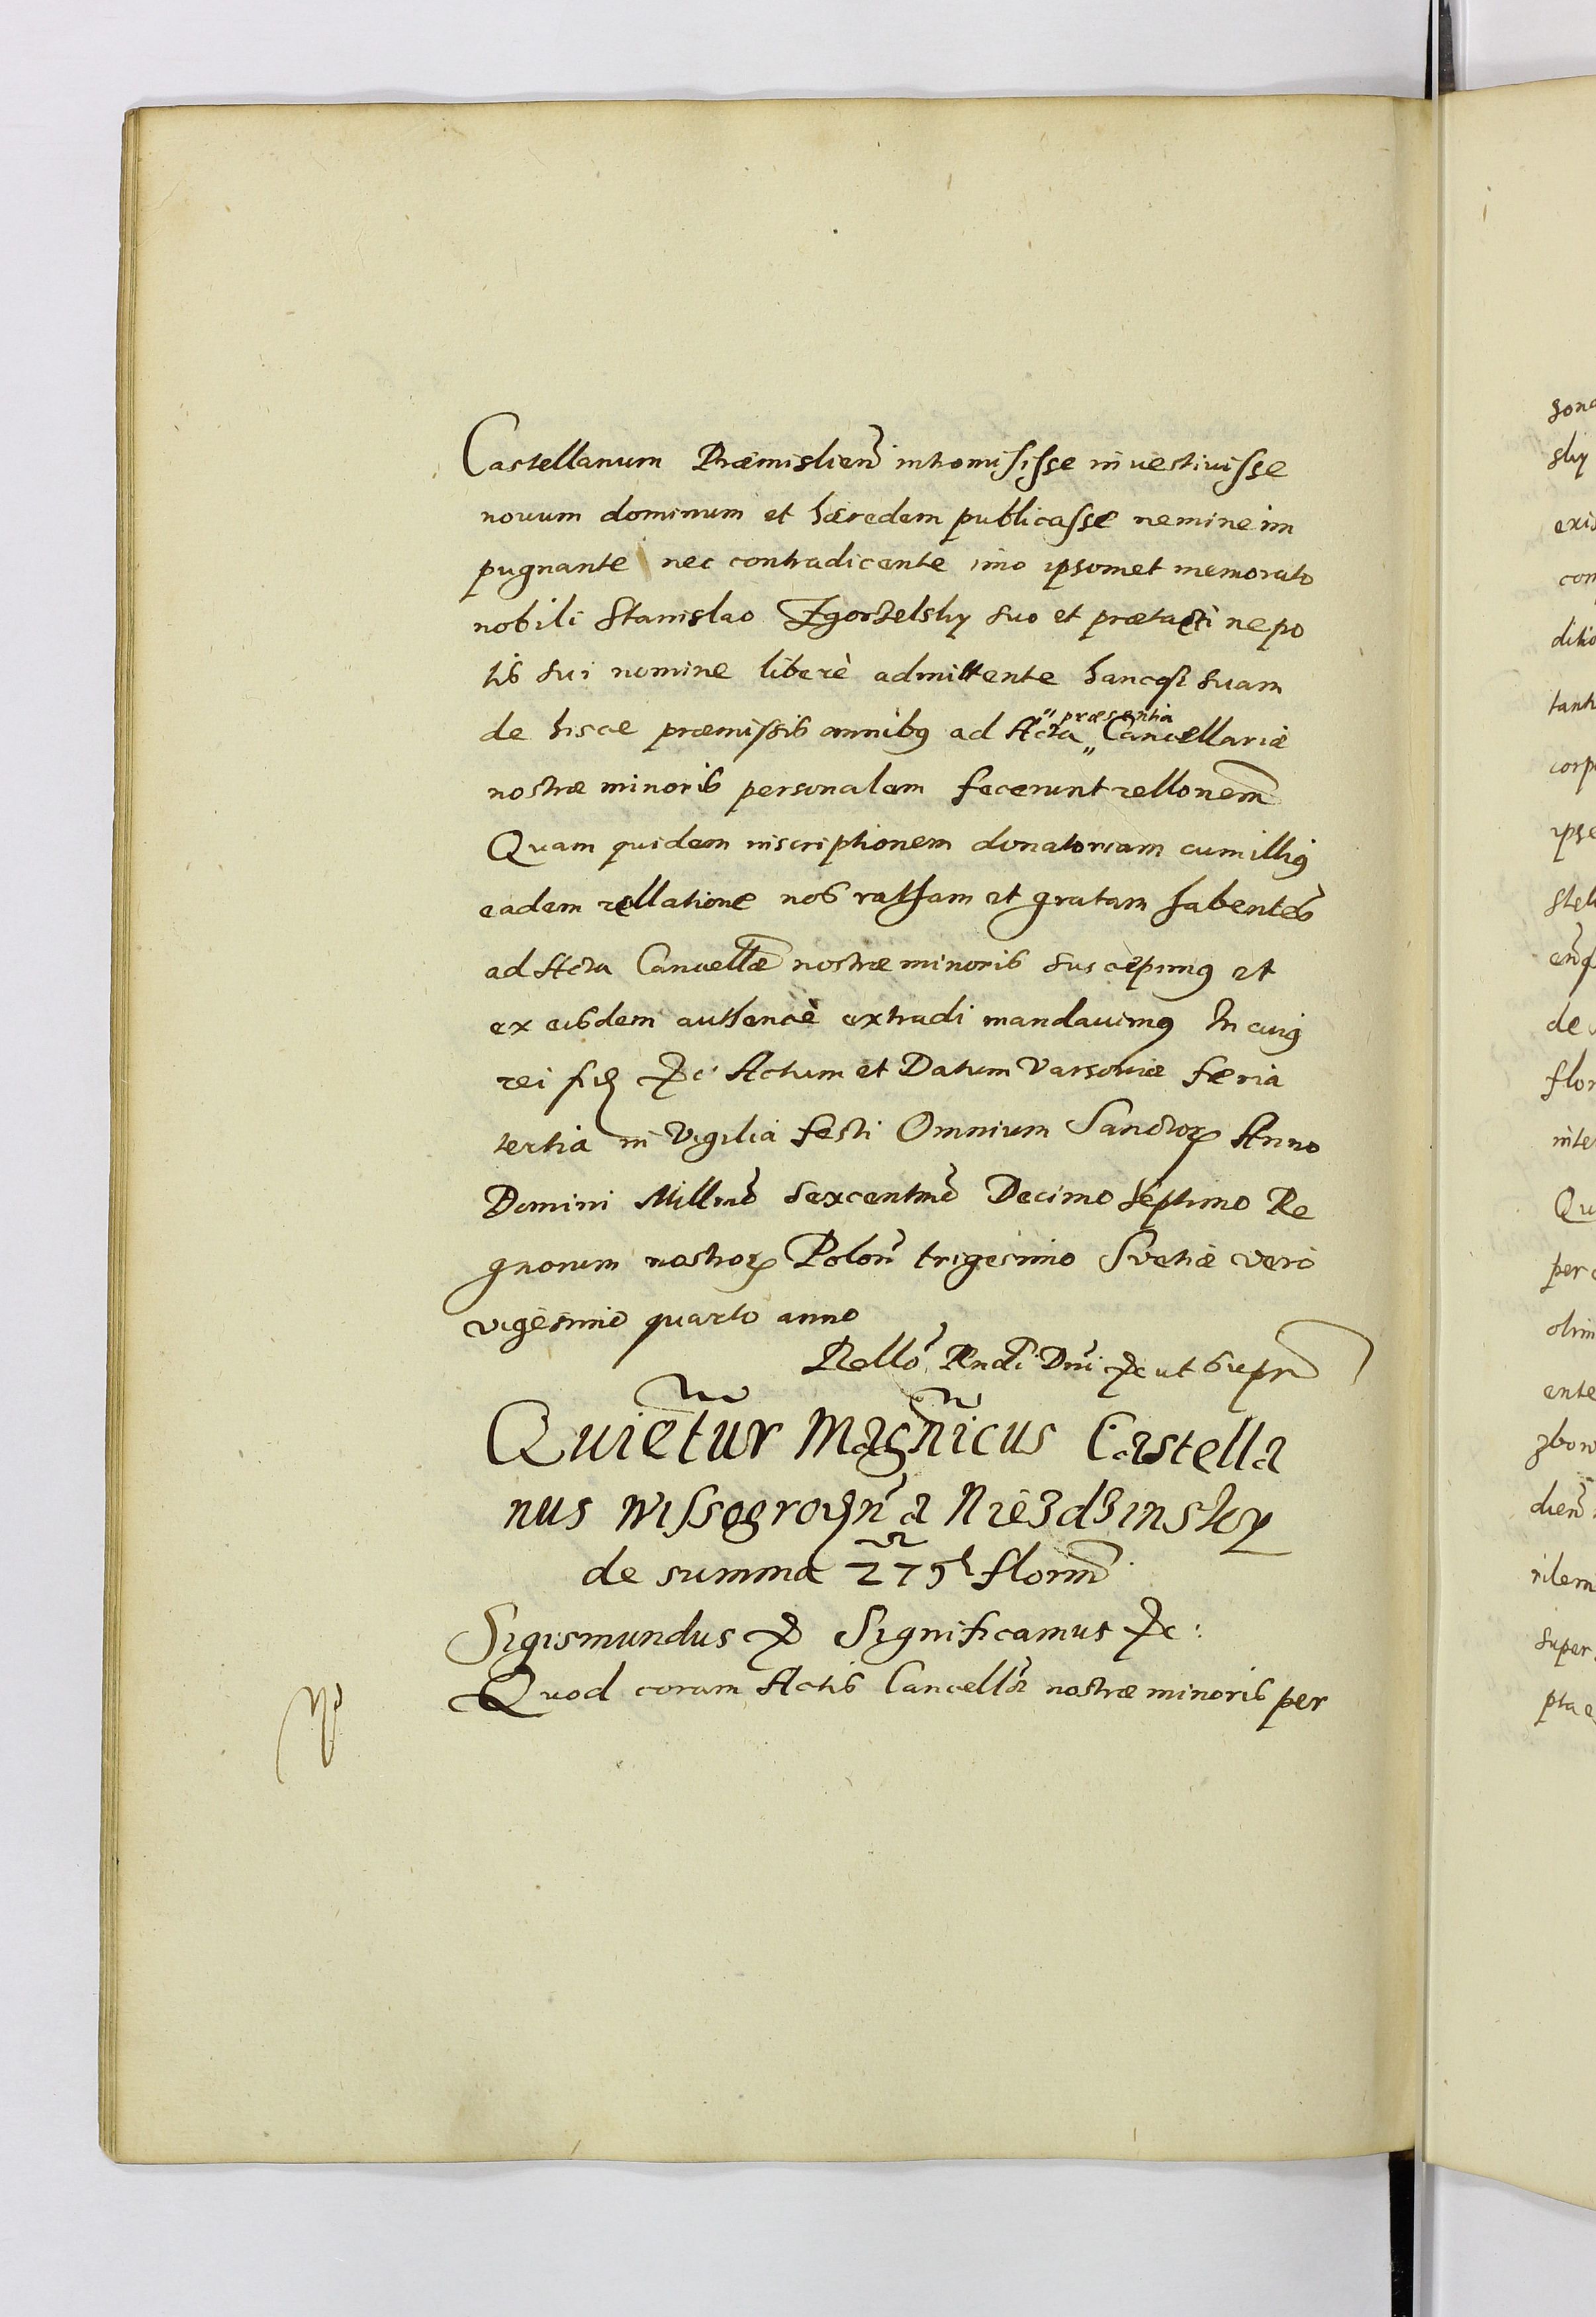 Castellanum Præmislien̄ intromisisse investivisse
novum dominum et hæredem publicasse nemine im
pugnante nec contradicente imo ipsomet memorato
nobili Stanislao Zgorzelsky suo et prætacti nepo
tis sui nomine liberè admittente hancq₃ suam
de hisce præmissis omnibꝯ ad Acta „præsentia„ Cancellariæ
nostræ minoris personalem fecerunt rellonem
Quam quidem inscriptionem donatoriam cum illiꝯ
eadem rellatione nos ratham et gratam habentes
ad Acta Cancellæ nostræ minoris suscepimꝯ et
ex eisdem authencè extradi mandavimꝯ In cuiꝯ
rei fid &c: Actum et Datum Varsoviæ feria
tertia in Vigilia festi Omnium Sanctoꝝ Anno
Domini Millmo Sexcentmo Decimo Septimo Re
gnorum nostroꝝ Polon̄ trigesimo Svetiæ vero
vigesimo quarto anno
Rello Rndi Dni &c ut supra
Quietur Magnicus Castella
nus Wissogrodn̄ a Niedzinsky
de summa 275 florm
Sigismundus & Significamus &c:
Quod coram Actis Cancellæ nostræ minoris per